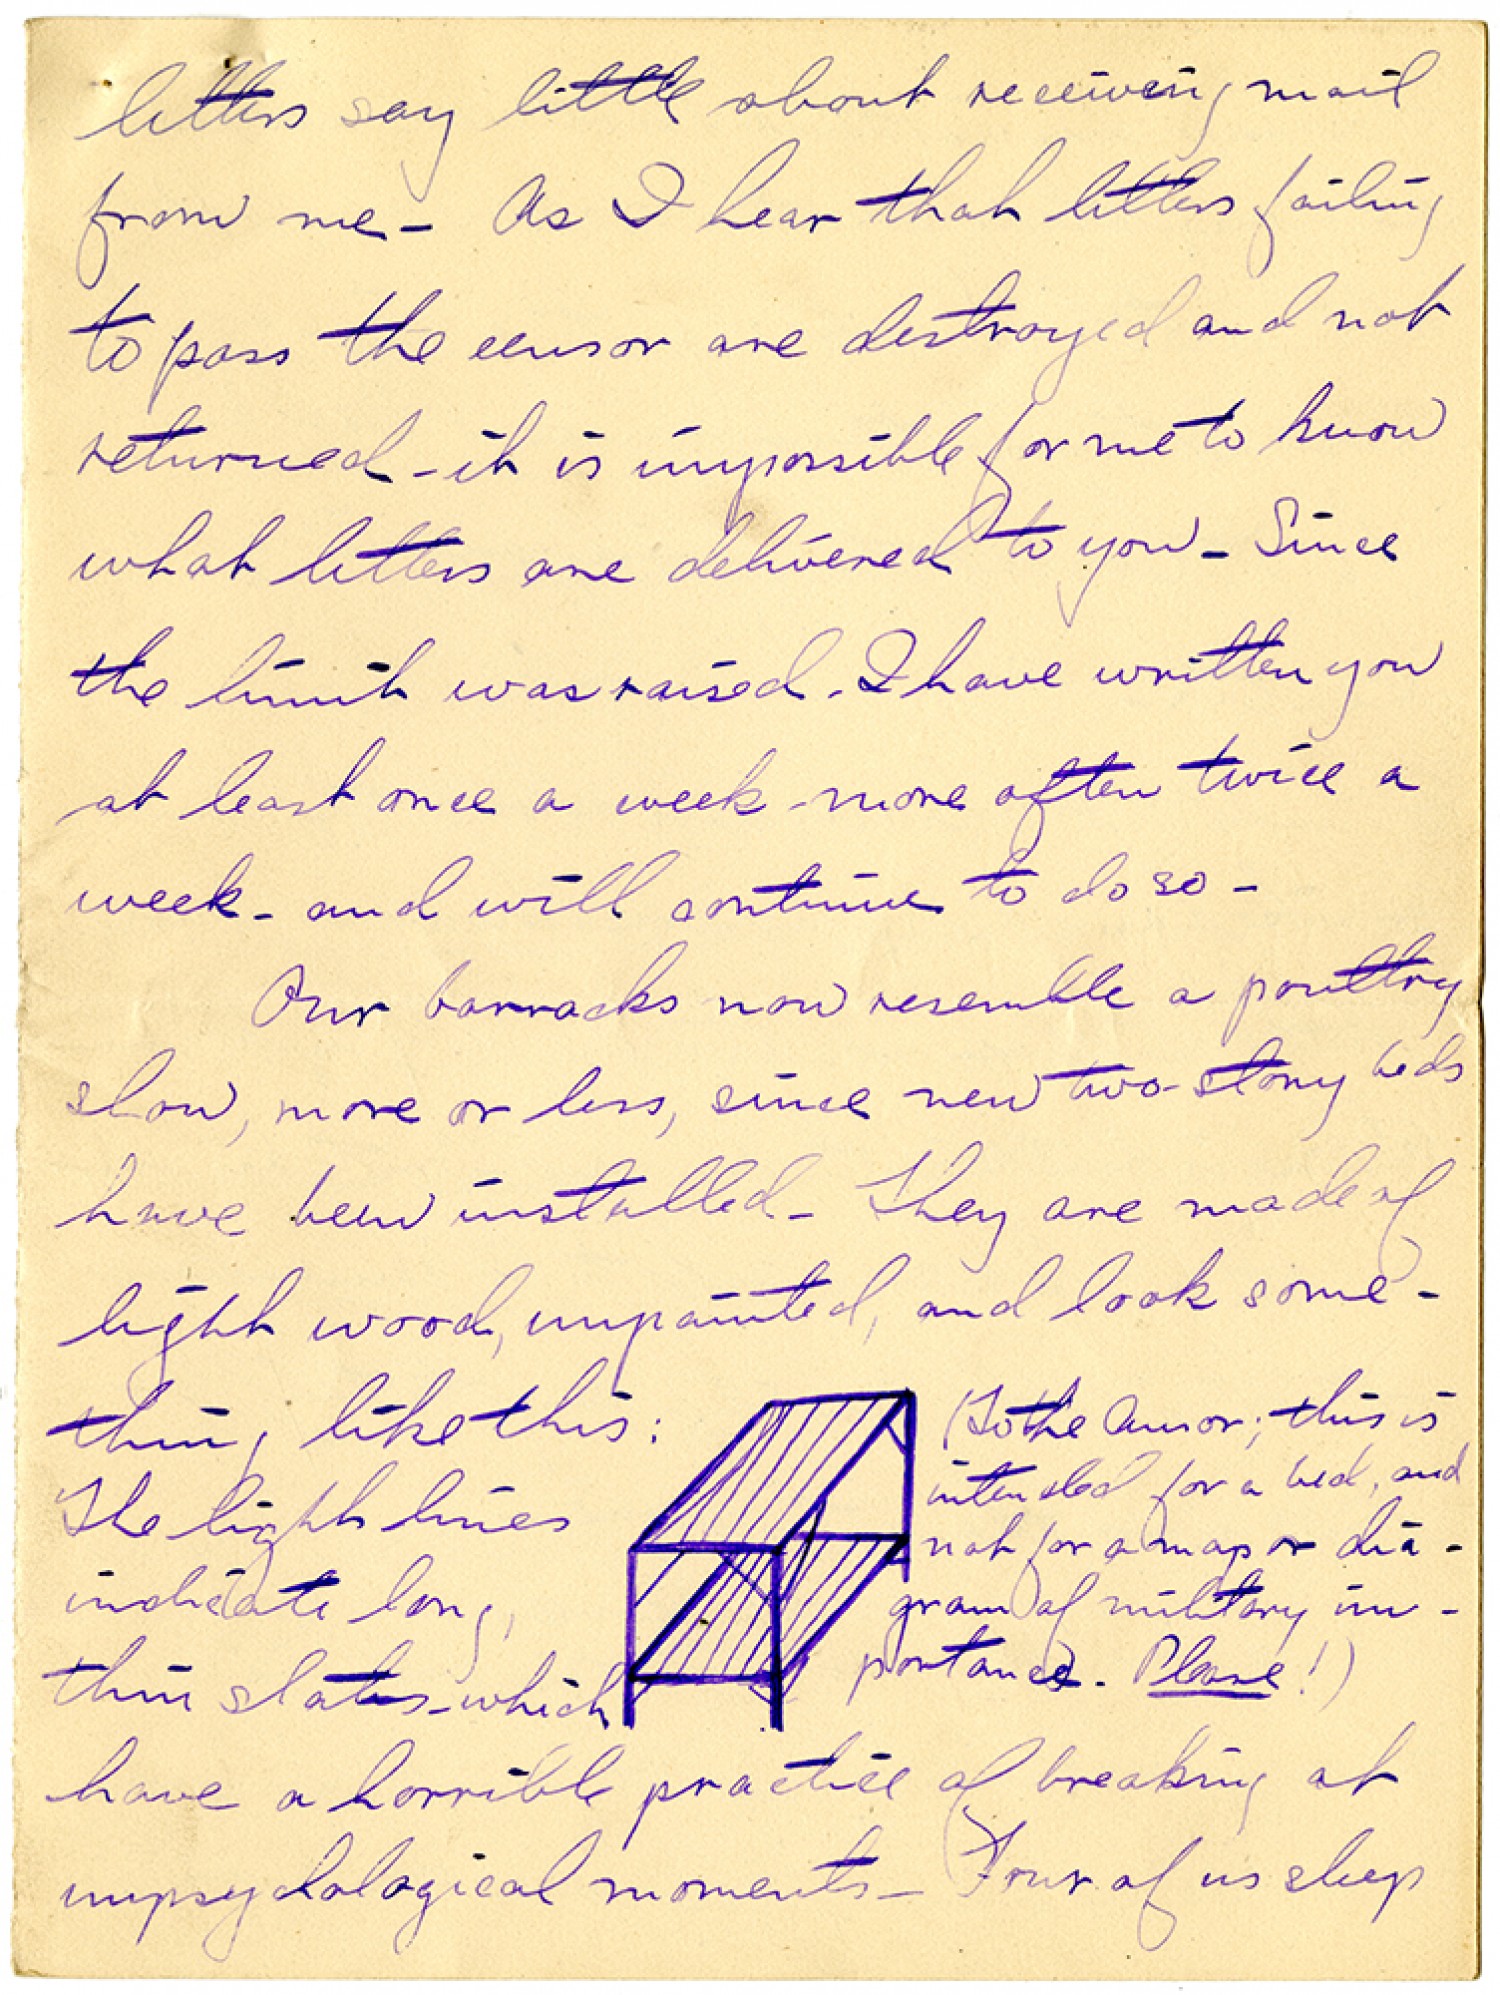 letters say little about receiving mail
from me - As I hear that letters failing
to pass the censor are destroyed and not
returned - it is impossible for me to know
what letters are delivered to you - Since
the limit was raised - I have written you
at least once a week - more often twice a
week - and will continue to do so -
Our barracks now resemble a poultry
show, more or less, since new two-story beds
have been installed - They are made of
light wood, unpainted, and look some-
thing like this:
The light lines
indicate long,
thin slats - which
(To the Censor; this is
intended for a bed, and
not for a map or dia-
gram of military im-
portance. Please!)
have a horrible practice of breaking at
unpsychological moments - Four of us sleep